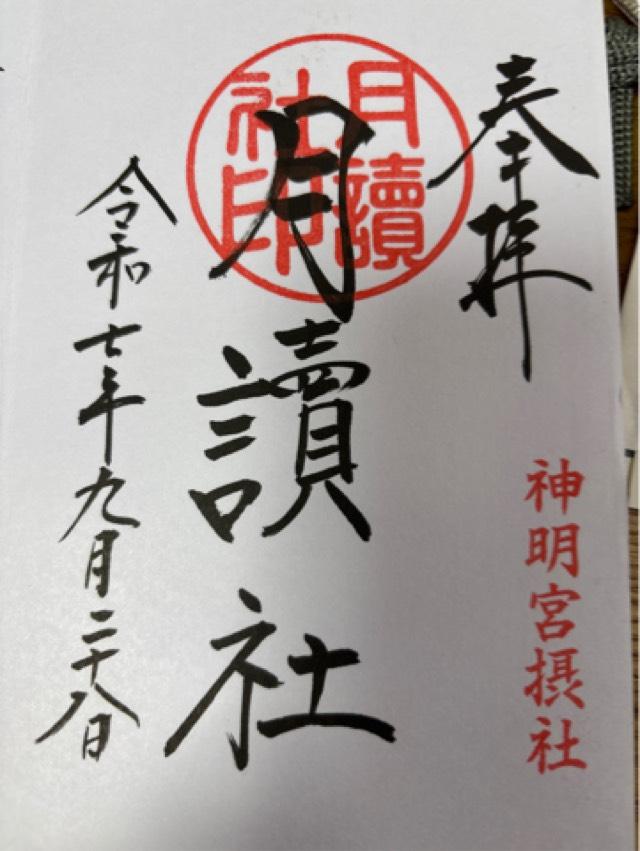 奉拝
神明宮摂社
月讀社印
月讀社
令和七年九月二十八日